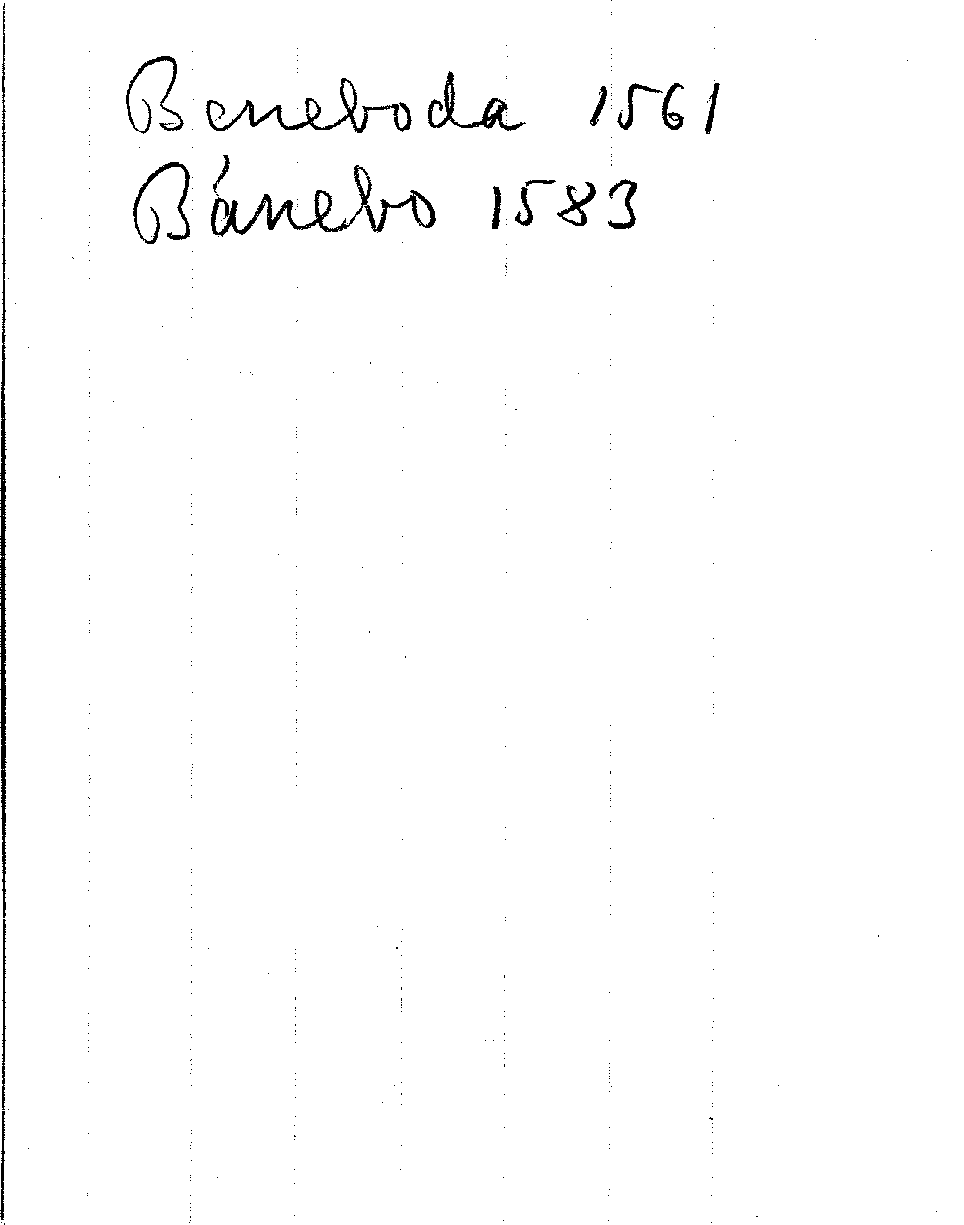 Baneboda 1561
Bånebo 1583